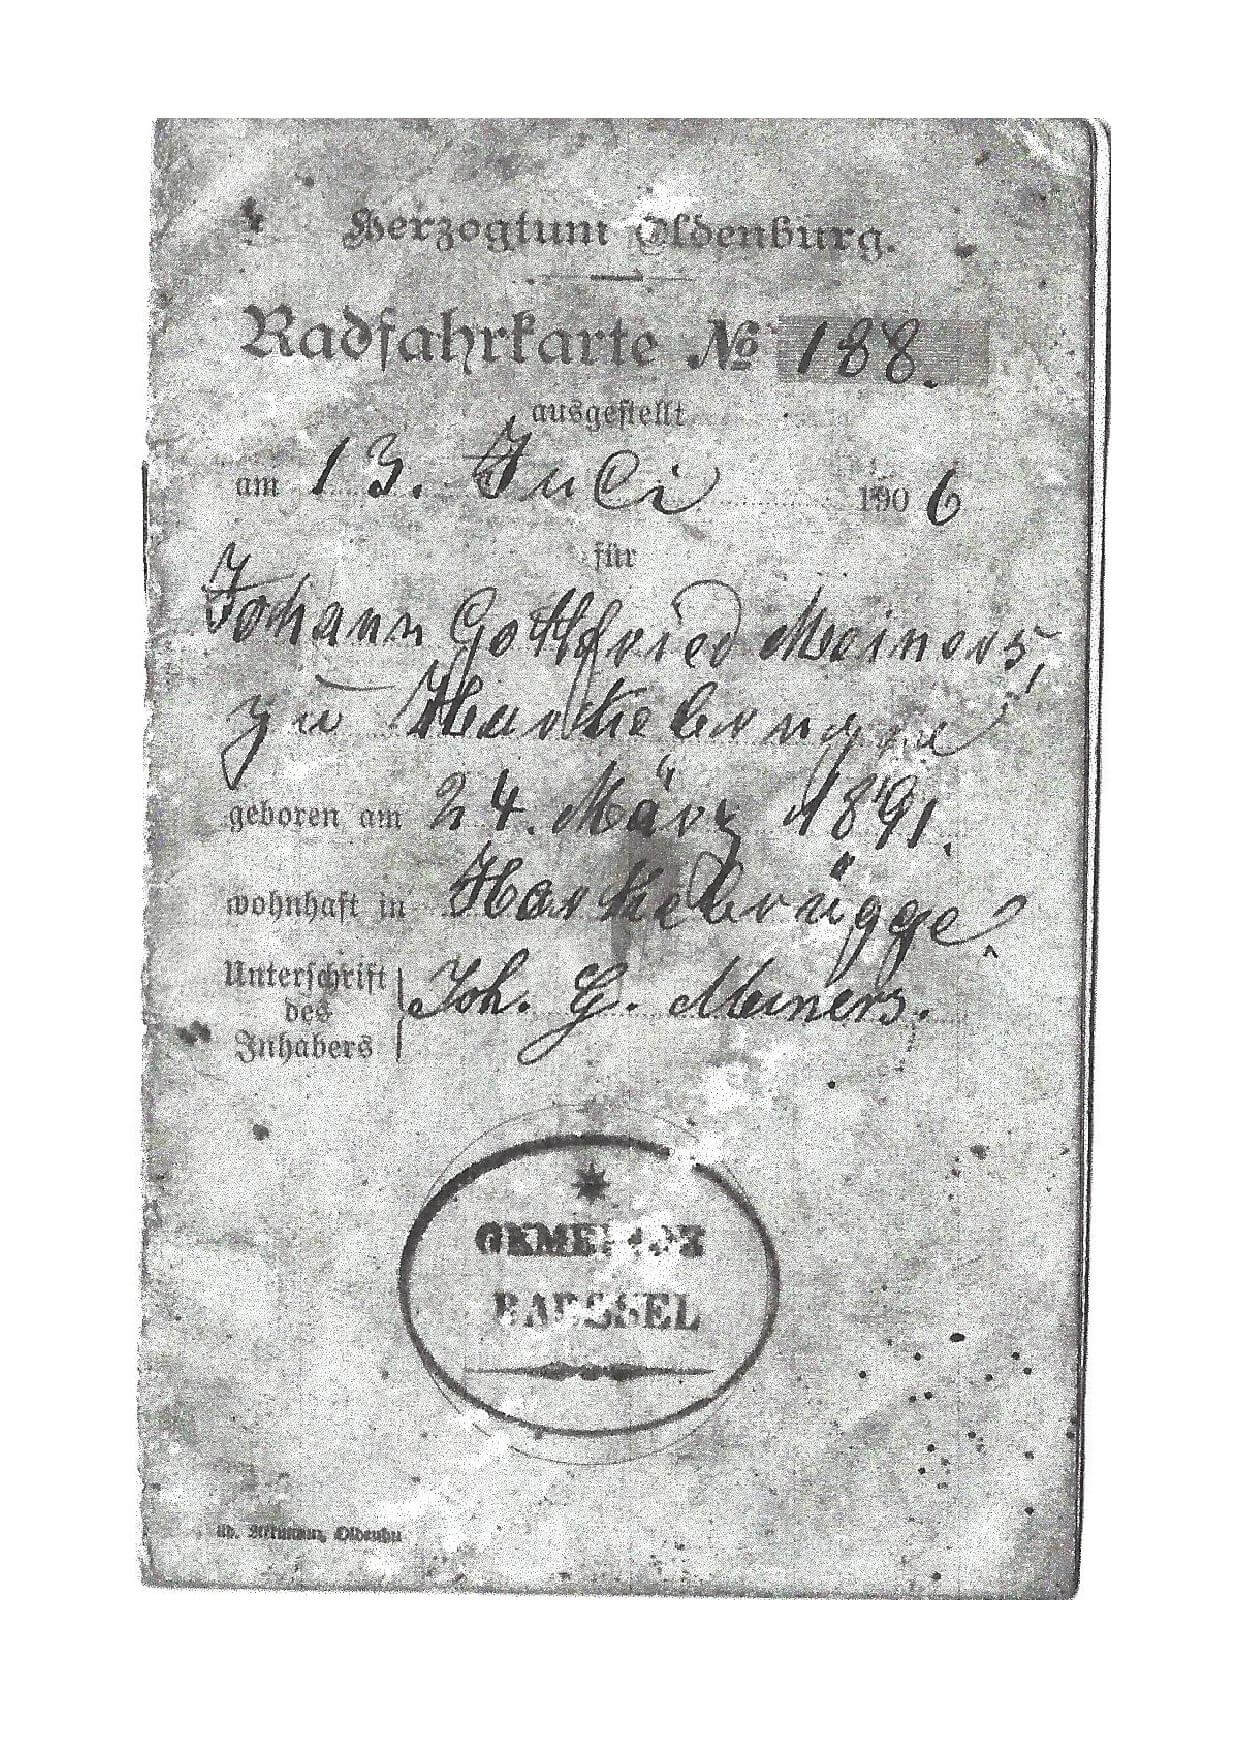 Herzogtum Oldenburg.
Radfahrkarte № 188.
ausgestellt
am 13. Juli 1906
für
Johann Gottfried Meiners,
zu Harkebrügge
geboren am 24. März 1891.
wohnhaft in Harkebrügge.
Unterschrift des Inhabers Joh. G. Meiners.
GEMEINDE
BARSSEL
Ad. Littmann, Oldenbu